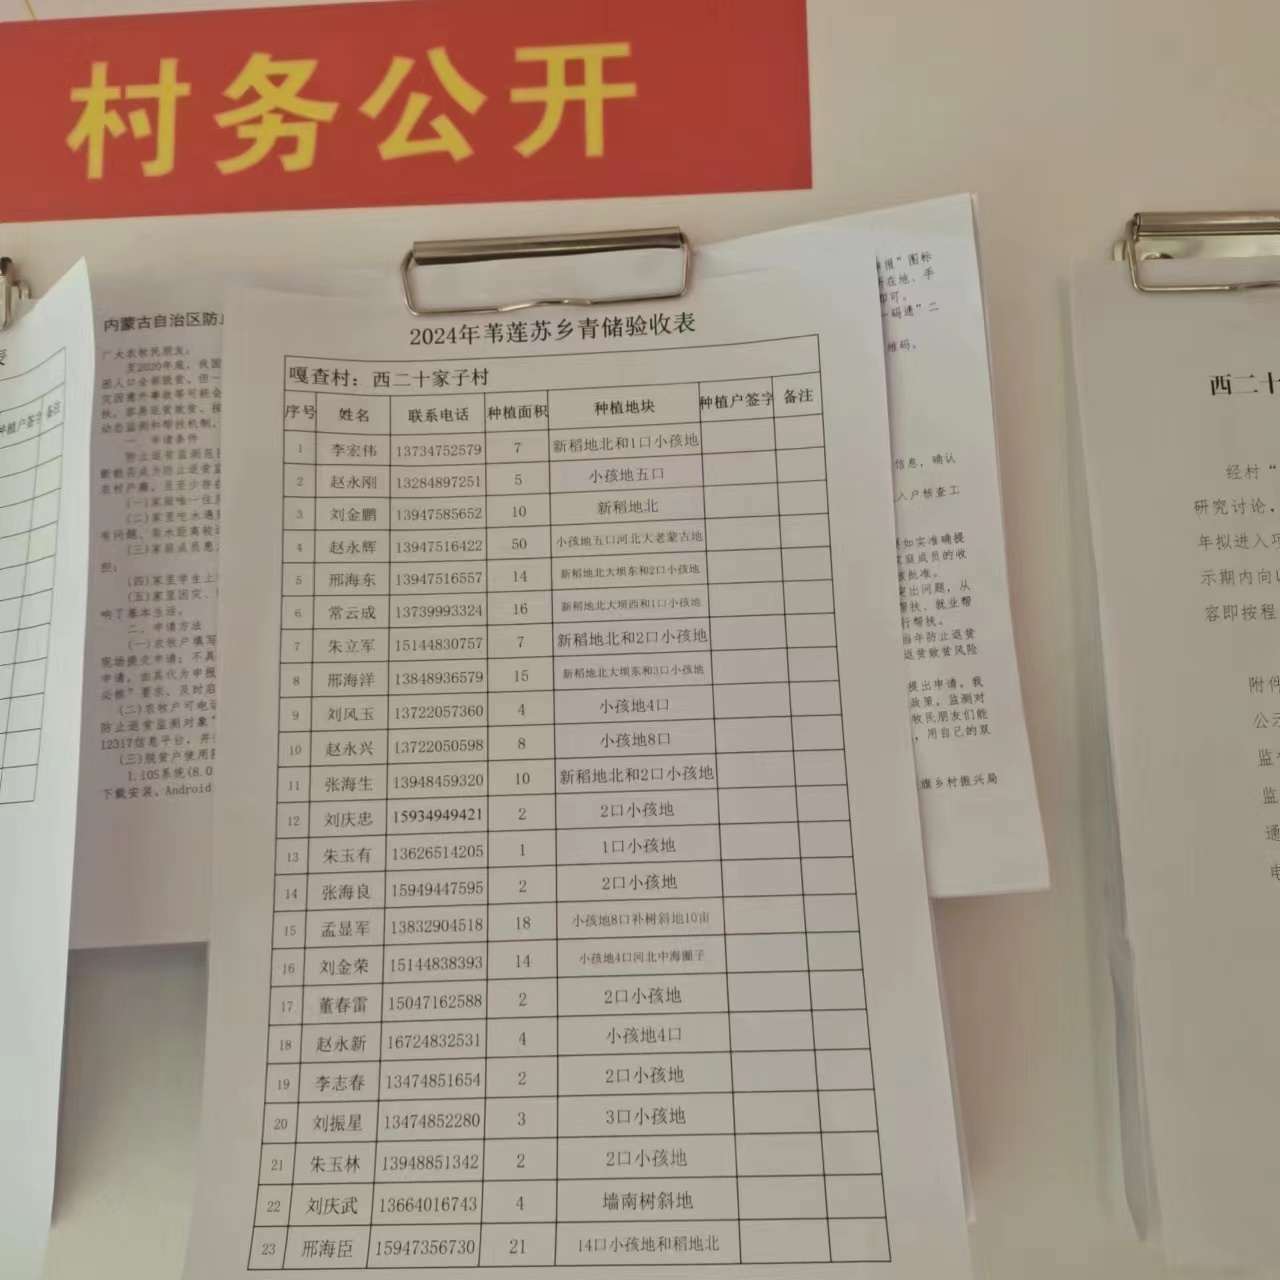 村务公开
2024年苇莲苏乡青储验收表
嘎查村：西二十家子村
序号 姓名 联系电话 种植面积 种植地块 种植户签字 备注
1 李宏伟 13734752579 7 新稻地北和1口小孩地
2 赵永刚 13284897251 5 小孩地五口
3 刘金鹏 13947585652 10 新稻地北
4 赵永辉 13947516422 50 小孩地五口河北大老蒙古地
5 邢海东 13947516557 14 新稻地北大坝东和2口小孩地
6 常云成 13739993324 16 新稻地北大坝西和1口小孩地
7 朱立军 15144830757 7 新稻地北和2口小孩地
8 邢海洋 13848936579 15 新稻地北大坝东和3口小孩地
9 刘凤玉 13722057360 4 小孩地4口
10 赵永兴 13722050598 8 小孩地8口
11 张海生 13948459320 10 新稻地北和2口小孩地
12 刘庆忠 15934949421 2 2口小孩地
13 朱玉有 13626514205 1 1口小孩地
14 张海良 15949447595 2 2口小孩地
15 孟显军 13832904518 18 小孩地8口补树斜地10亩
16 刘金荣 15144838393 14 小孩地4口河北中海圈子
17 董春雷 15047162588 2 2口小孩地
18 赵永新 16724832531 4 小孩地4口
19 李志春 13474851654 2 2口小孩地
20 刘振星 13474852280 3 3口小孩地
21 朱玉林 13948851342 2 2口小孩地
22 刘庆武 13664016743 4 墙南树斜地
23 邢海臣 15947356730 21 14口小孩地和稻地北
种植户签字 备注
内蒙古自治区防止
广大农牧民朋友：
至2020年底，我国
困人口全部脱贫。但一
灾因意外事故等可能会
动态监测和帮扶机制，
一、申请条件
防止返贫监测范围
(一)家庭唯一住房
(二)家里吃水遇到
(三)家庭成员患
担；
(四)家里学生上
(五)家里因灾、
响了基本生活。
二、申请方法
(一)农牧户填写
现场提交申请；不具
申请，由其代为申报
必核”要求，及时启
(二)农牧户可电话
防止返贫监测对象”
12317信息平台，并
(三)脱贫户使用
1.iOS系统(8.0
下载安装，Android
报”图标
所在地、手
即可。
一码通”二
维码，
信息，确认
入户核查工
如实准确提
家庭成员的收
批准。
突出问题，从
帮扶、就业帮
行帮扶。
当年防止返贫
返贫致贫风险
提出申请。我
政策，监测对
牧民朋友们能
，用自己的双
旗乡村振兴局
西二十
经村“
研究讨论，
年拟进入项
示期内向
容即按程
附件
公示
监
监
通
电